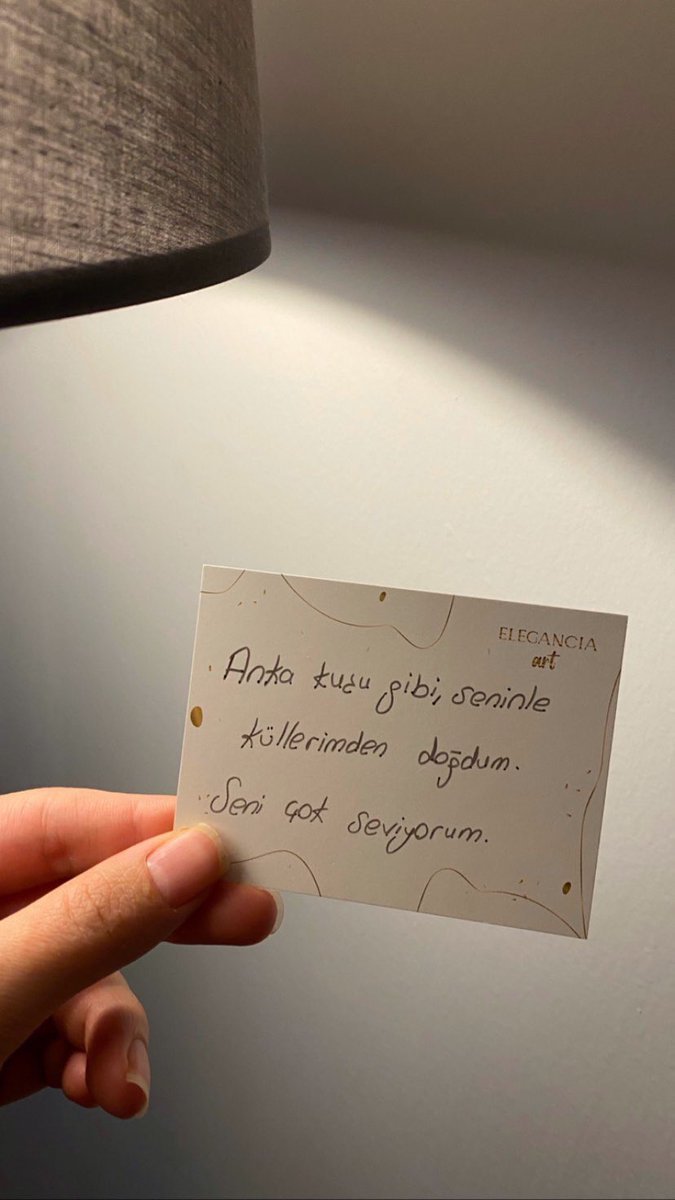 ELEGANCIA
art
Anka kuşu gibi, seninle
küllerimden doğdum.
Seni çok seviyorum.